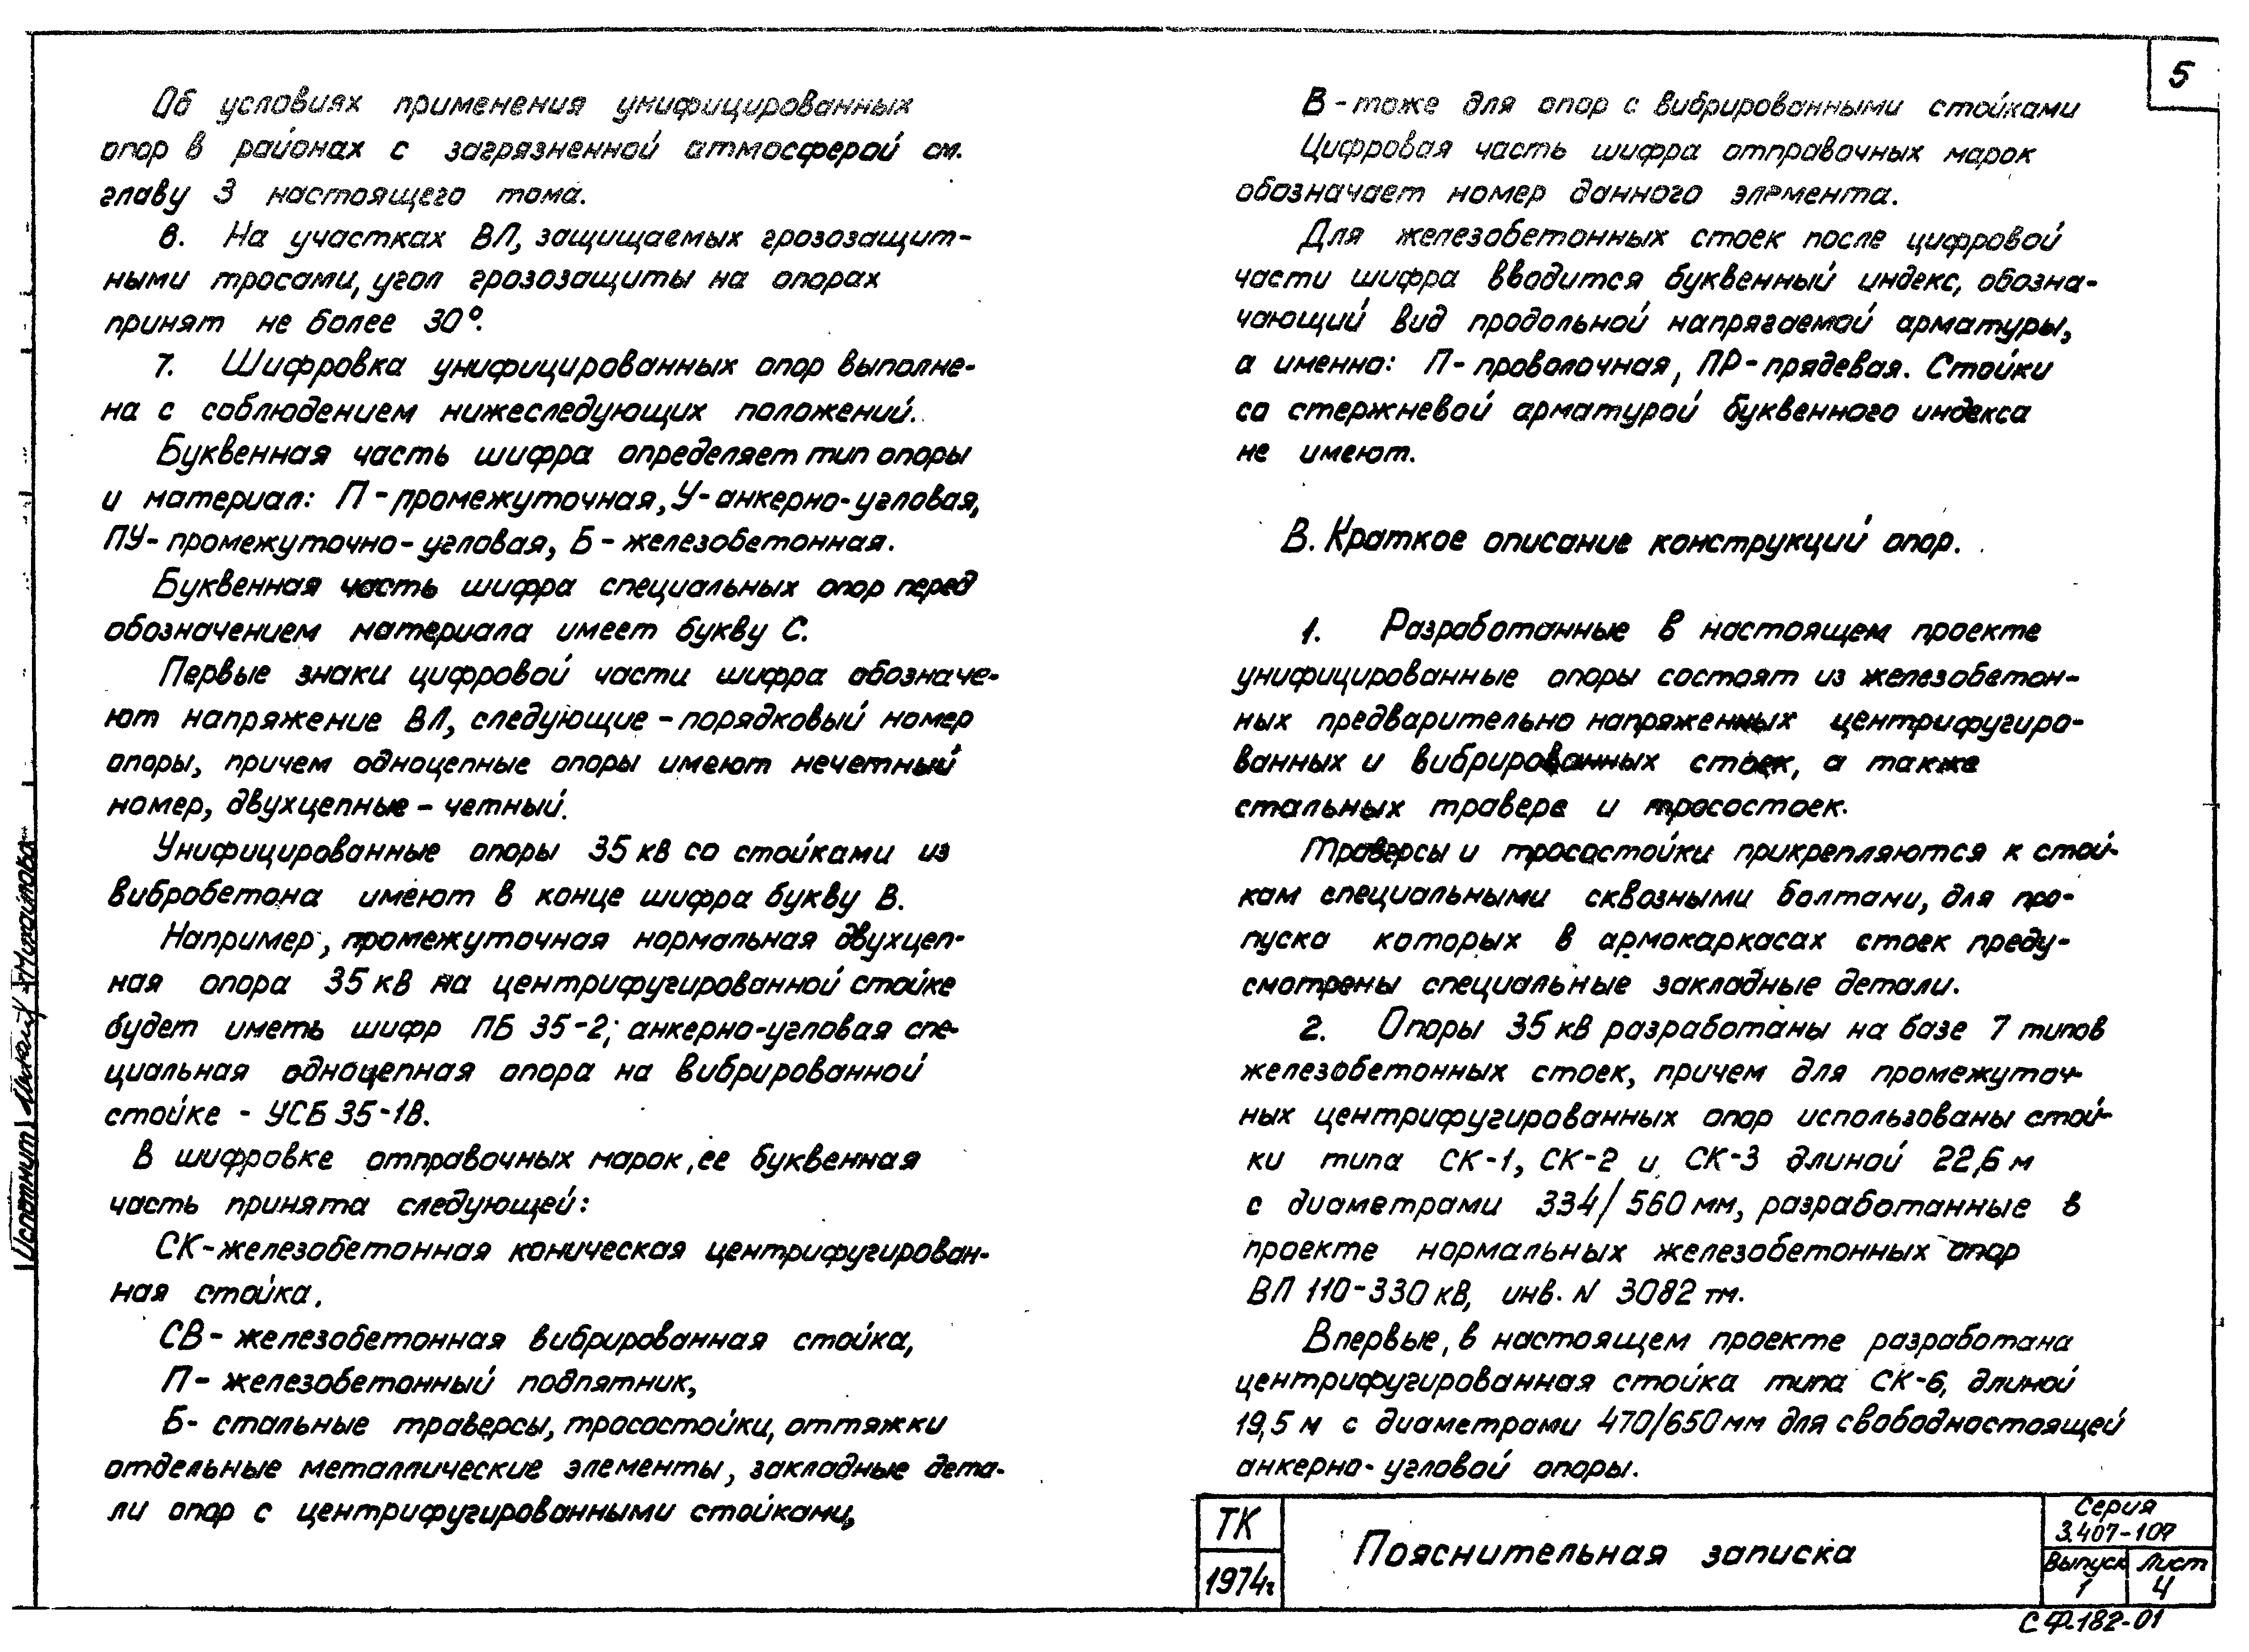 5
Об условиях применения унифицированных
опор в районах с загрязненной атмосферой см.
главу 3 настоящего тома.
6. На участках ВЛ, защищаемых грозозащит-
ными тросами, угол грозозащиты на опорах
принят не более 30°.
7. Шифровка унифицированных опор выполне-
на с соблюдением нижеследующих положений.
Буквенная часть шифра определяет тип опоры
и материал: П - промежуточная, У - анкерно-угловая,
ПУ - промежуточно-угловая, Б - железобетонная.
Буквенная часть шифра специальных опор перед
обозначением материала имеет букву С.
Первые знаки цифровой части шифра обозначе-
ют напряжение ВЛ, следующие - порядковый номер
опоры, причем одноцепные опоры имеют нечетный
номер, двухцепные - четный.
Унифицированные опоры 35 кв со стойками из
вибробетона имеют в конце шифра букву В.
Например, промежуточная нормальная двухцеп-
ная опора 35 кв на центрифугированной стойке
будет иметь шифр ПБ 35-2; анкерно-угловая спе-
циальная одноцепная опора на вибрированной
стойке - УСБ 35-1В.
В шифровке отправочных марок, ее буквенная
часть принята следующей:
СК - железобетонная коническая центрифугирован-
ная стойка,
СВ - железобетонная вибрированная стойка,
П - железобетонный подпятник,
Б - стальные траверсы, тросостойки, оттяжки
отдельные металлические элементы, закладные дета-
ли опор с центрифугированными стойками,
В - тоже для опор с вибрированными стойками
Цифровая часть шифра отправочных марок
обозначает номер данного элемента.
Для железобетонных стоек после цифровой
части шифра вводится буквенный индекс, обозна-
чающий вид продольной напрягаемой арматуры,
а именно: П - проволочная, ПР - прядевая. Стойки
со стержневой арматурой буквенного индекса
не имеют.
В. Краткое описание конструкций опор.
1. Разработанные в настоящем проекте
унифицированные опоры состоят из железобетон-
ных предварительно напряженных центрифугиро-
ванных и вибрированных стоек, а также
стальных траверс и тросостоек.
Траверсы и тросостойки прикрепляются к стой-
кам специальными сквозными болтами, для про-
пуска которых в армокаркасах стоек преду-
смотрены специальные закладные детали.
2. Опоры 35 кв разработаны на базе 7 типов
железобетонных стоек, причем для промежуточ-
ных центрифугированных опор использованы стой-
ки типа СК-1, СК-2 и СК-3 длиной 22,6 м
с диаметрами 334/560 мм, разработанные в
проекте нормальных железобетонных опор
ВЛ 110-330 кВ, инв. N 3082 тм.
Впервые, в настоящем проекте разработана
центрифугированная стойка типа СК-6, длиной
19,5 м с диаметрами 470/650 мм для свободностоящей
анкерно-угловой опоры.
ТК
1974г
Пояснительная записка
Серия
3.407-107
Выпуск
1
Лист
4
СФ-182-01